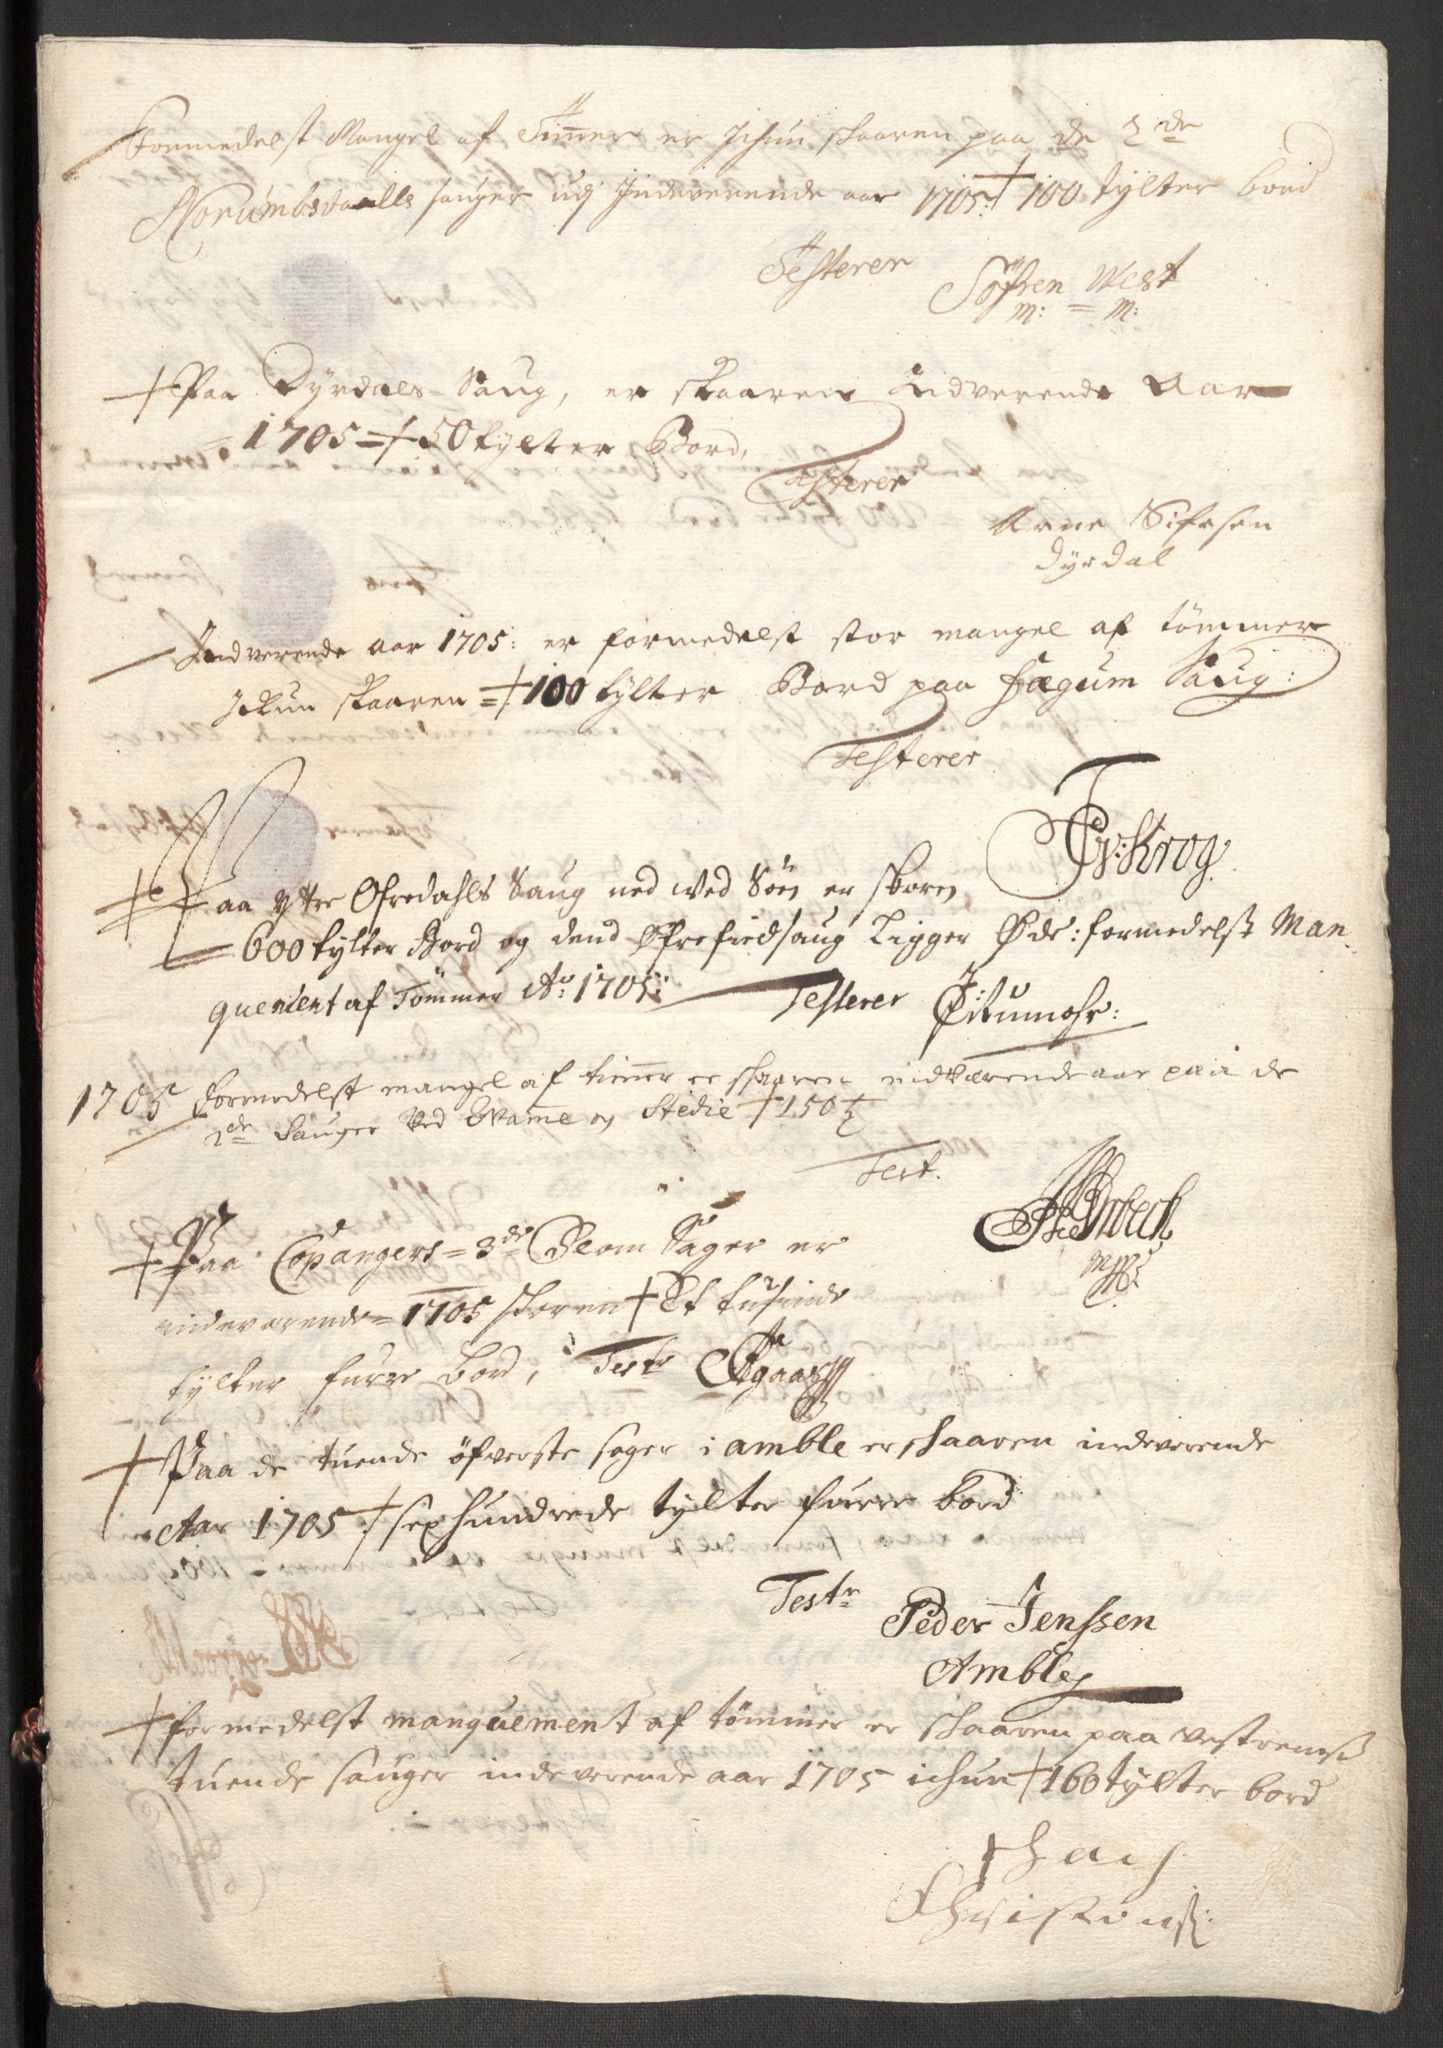 Formedelst Mangel af Timer er Ichun skaaren paa de 2de
Norumbsdaalls sauger udj Indeverende aar 1705 100 tylter bord
Testerer
Søfren West
m: = m:
Paa Dyrdals-Saug, er skaaren Indverende Aar
1705 = 50 tylter Bord,
Testerer
Arne Sifesen
dyrdal
Indverende aar 1705: er formedelst stor mangel af tømmer
Ickun skaaren = 100 tylter Bord paa Hægum Saug:
Testerer
Iv: Krog
Paa Ytre Ofredahls Saug ned wed Søen er skoren
600 tylter Bord og dend Øfrefiedsaug Ligger Øde: formedelst Man-
quement af Tømmer Ao: 1705:
Testerer
1705 formedelst mangel af timer er skaaren indværende aar paa de
2de Sauger Ved Qvame og Stedie 150 t
Test.
Paa Copangers = 3de Sager er
indeværende = 1705 skoren Et tusinde
tylter furre bord, Testr
Paa de tuende øfverste sager i amble er skaaren indeverende
Aar 1705: sexhundrede tylter furre bord
Testr
Peder Jenssen
Ambley
formedelst manquement af tømmer er skaaren paa Vestrems
tuende sauger indeverende aar 1705 ichun 160 tylter bord